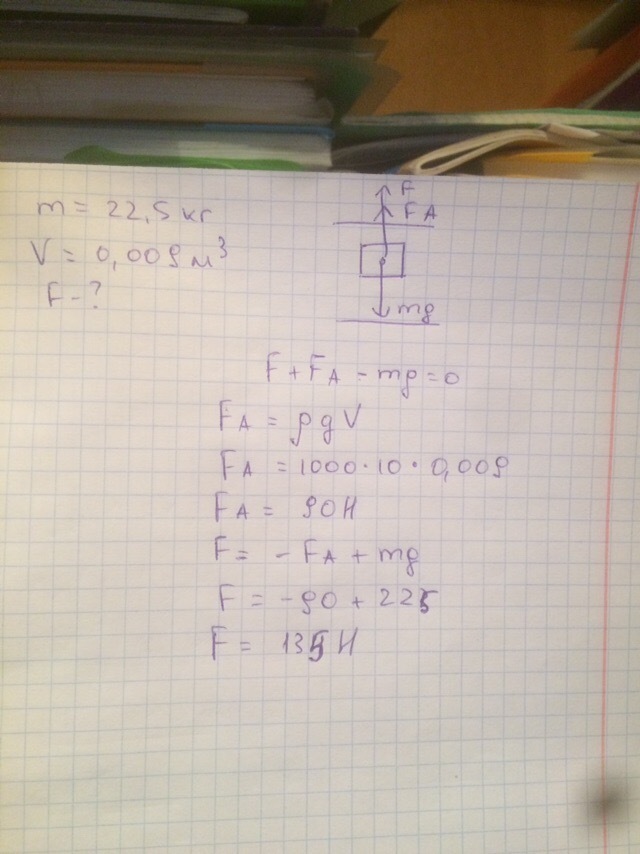 m = 22,5 кг
V = 0,009 м³
F - ?
F
FA
mg
F + FA - mg = 0
FA = ρgV
FA = 1000 · 10 · 0,009
FA = 90 Н
F = - FA + mg
F = -90 + 225
F = 135 Н